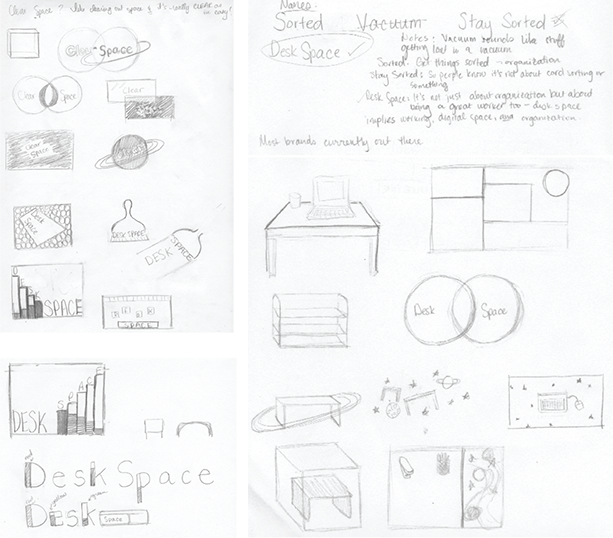 Clear Space?
Clear Space
Clear
Space
Clear
Clear
Space
Desk
Space
DESK SPACE
DESK SPACE
SPACE
SPACE
DESK
SPACE
Desk Space
Desk
Space
Names
Sorted Vacuum Stay Sorted
Desk Space ✓
Notes: Vacuum sounds like stuff
getting lost in a vacuum
Sorted: Get things sorted - organization
Stay Sorted: So people know it's not about card writing or
something
Desk Space: It's not just about organization but about
being a great worker too - desk space
implies working, digital space, and organization.
Most brands currently out there
Desk
Space